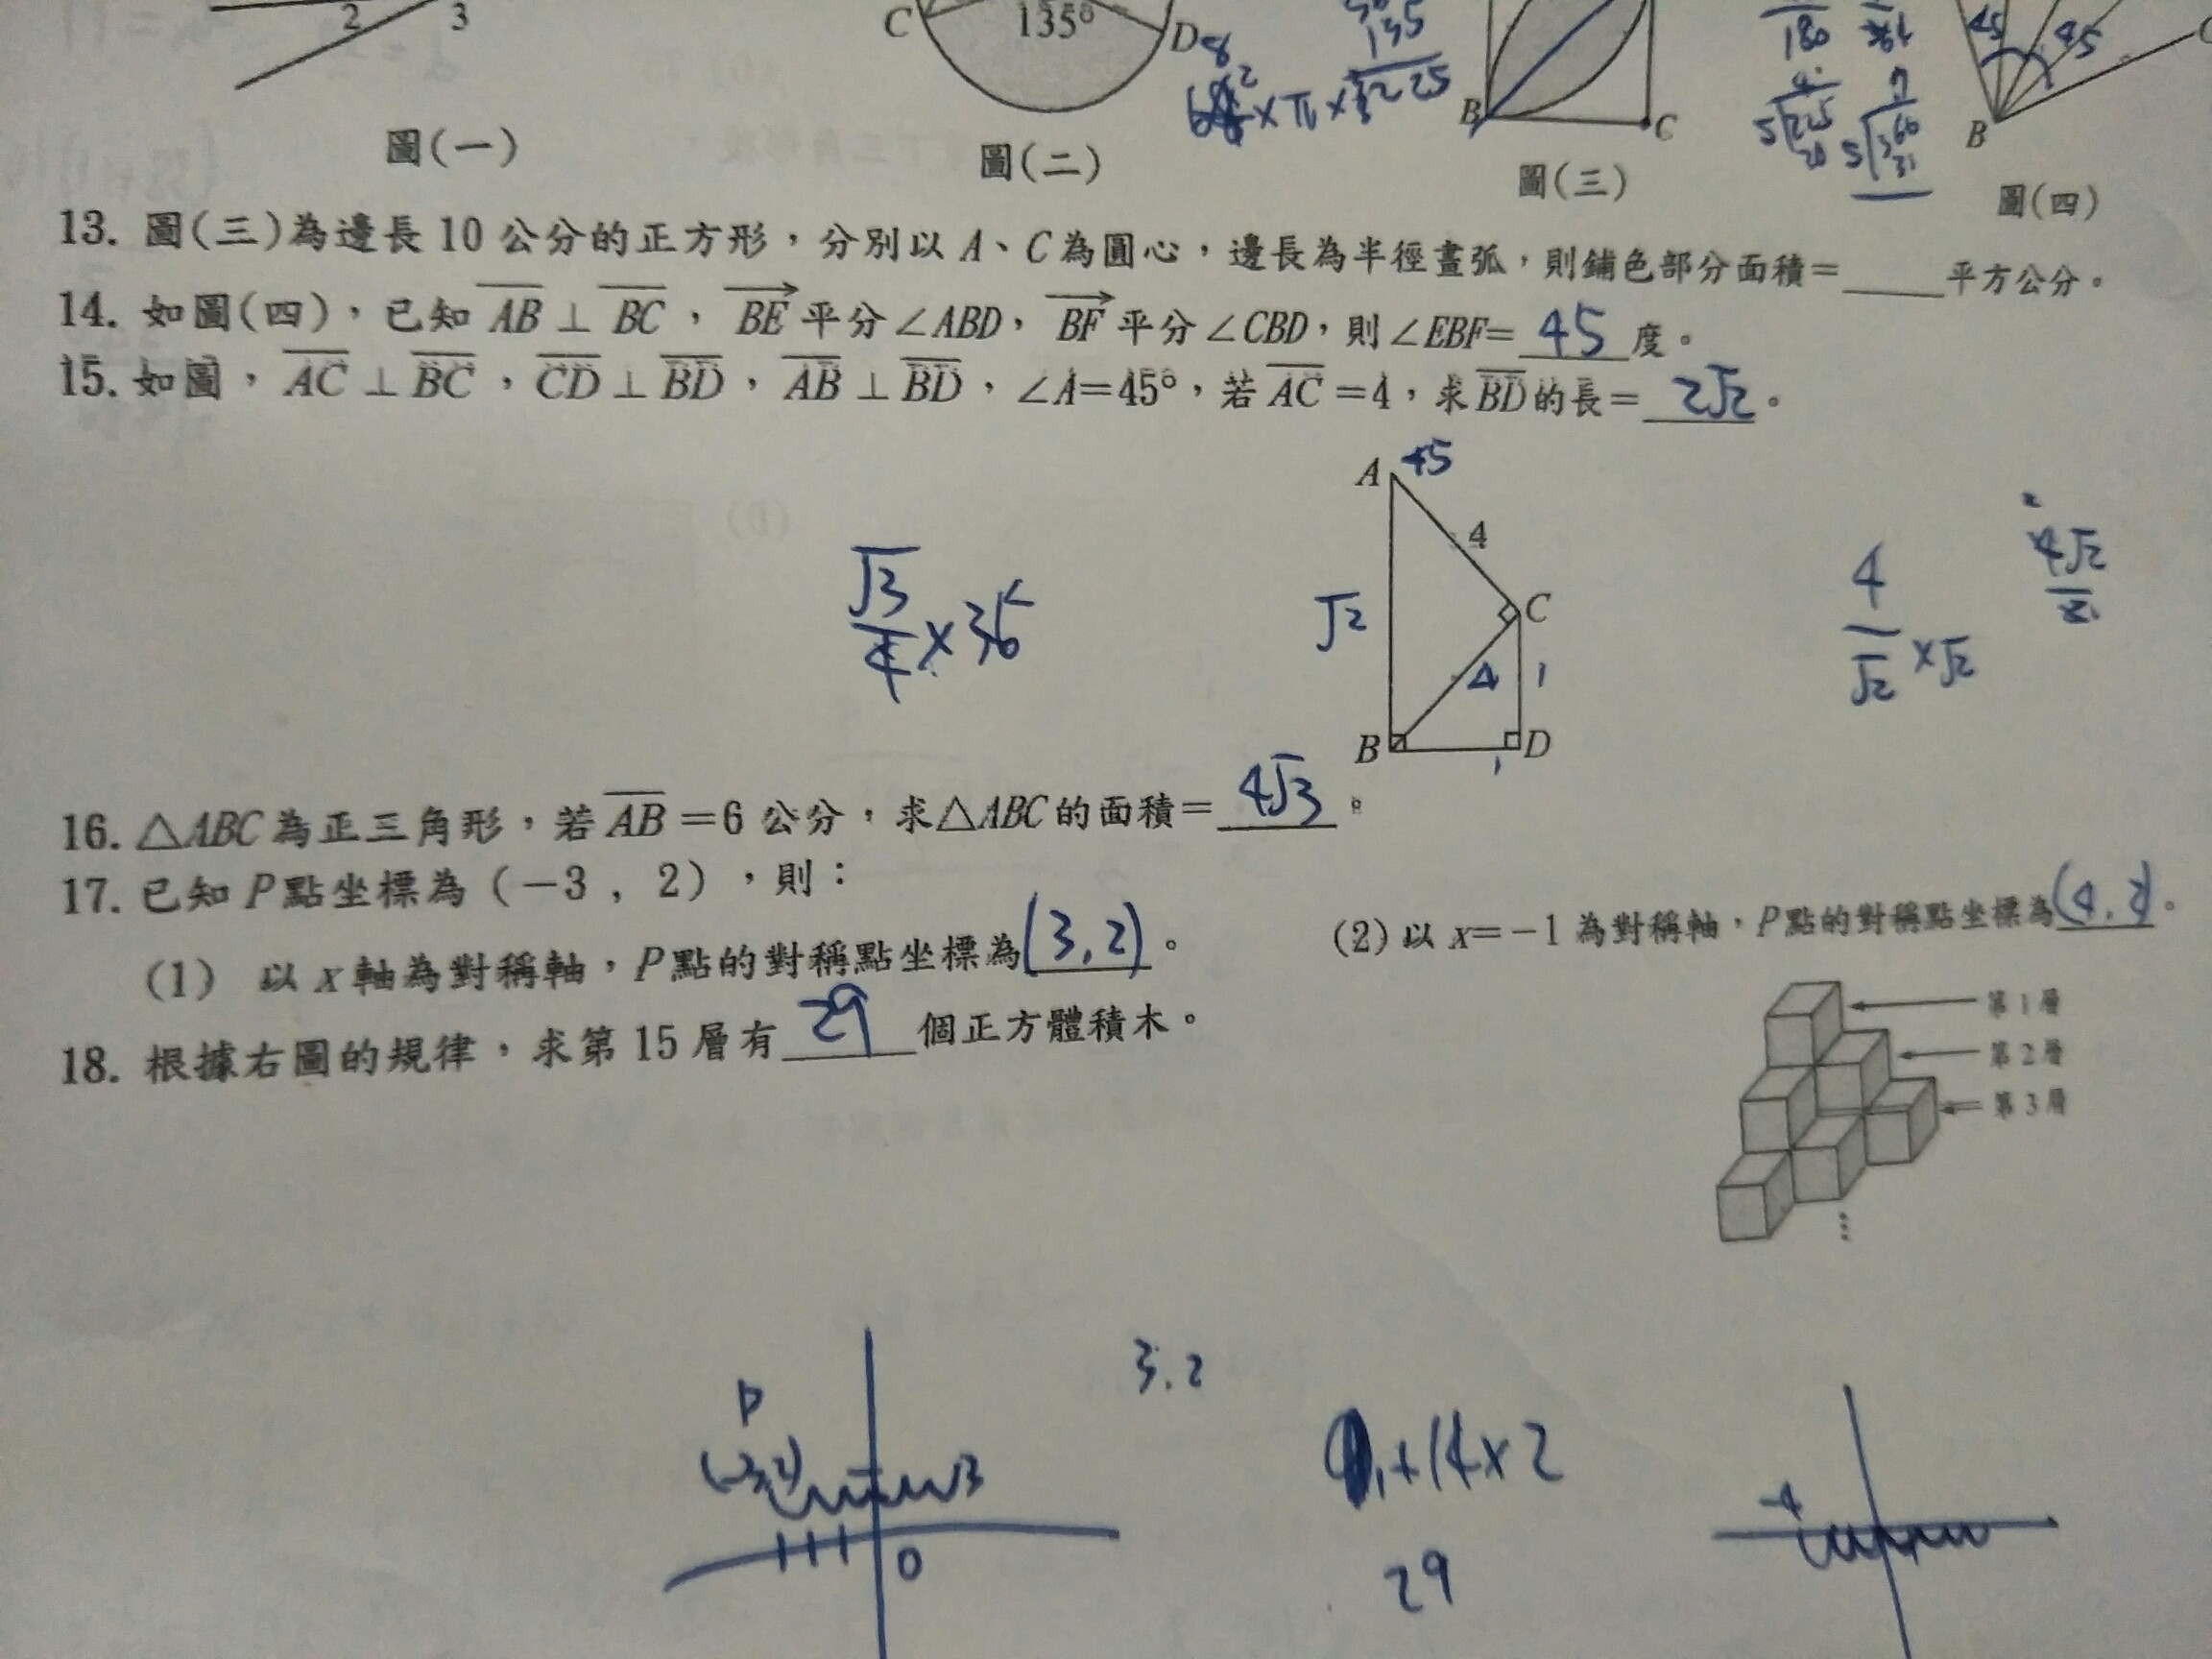 2 3
C 135° D
B C
180
45 45
B
8
135
×π× 225
圖(一) 圖(二) 圖(三) 圖(四)
13. 圖(三)為邊長10公分的正方形，分別以A、C為圓心，邊長為半徑畫弧，則鋪色部分面積=____平方公分。
14. 如圖(四)，已知AB⊥BC，BE平分∠ABD，BF平分∠CBD，則∠EBF=45度。
15. 如圖，AC⊥BC，CD⊥BD，AB⊥BD，∠A=45°，若AC=4，求BD的長=2√2。
A 45
4
C
√2
4 1
B D
1
√3/4×36
4/√2×√2
4√2/2
16. △ABC為正三角形，若AB=6公分，求△ABC的面積=4√3。
17. 已知P點坐標為(-3，2)，則：
(1) 以x軸為對稱軸，P點的對稱點坐標為(3,2)。 (2)以x=-1為對稱軸，P點的對稱點坐標為(4,2)。
18. 根據右圖的規律，求第15層有29個正方體積木。
第1層
第2層
第3層
⋮
P
3
0
3.2
1+14×2
29
-4